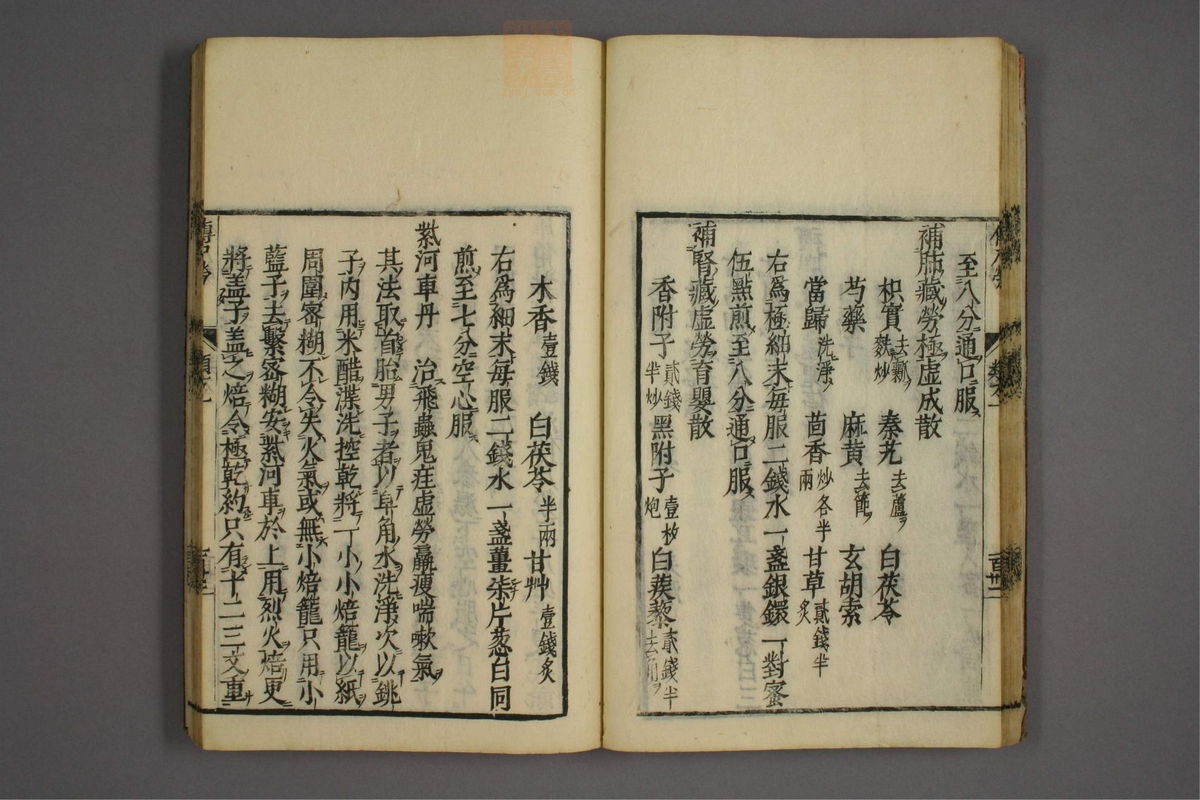 至八分通口服
補肺藏勞極虛成散
枳實去瓤麩炒 秦艽去蘆 白茯苓
芍藥 麻黄去節 玄胡索
當歸洗淨 茴香炒各半兩 甘草貳錢半炙
右為極細末每服二錢水一盞銀鐶一對蜜
伍點煎至八分通口服
補腎藏虛勞育嬰散
香附子貳錢半炒 黑附子壹枚炮 白蒺藜貳錢半去角
木香壹錢 白茯苓半兩 甘艸壹錢炙
右爲細末每服二錢水一盞薑柒片葱白同
煎至七分空心服
紫河車丹 治飛蟲鬼疰虛勞羸瘦喘嗽氣
其法取首胎男子者以皁角水洗淨次以銚
子内用米醋渫洗控乾將一小小焙籠以紙
周圍密糊不令失火氣或無小焙籠只用小
藍子去繫密糊安紫河車於上用烈火焙更
將盖子盖之焙令極乾約只有十二三文重